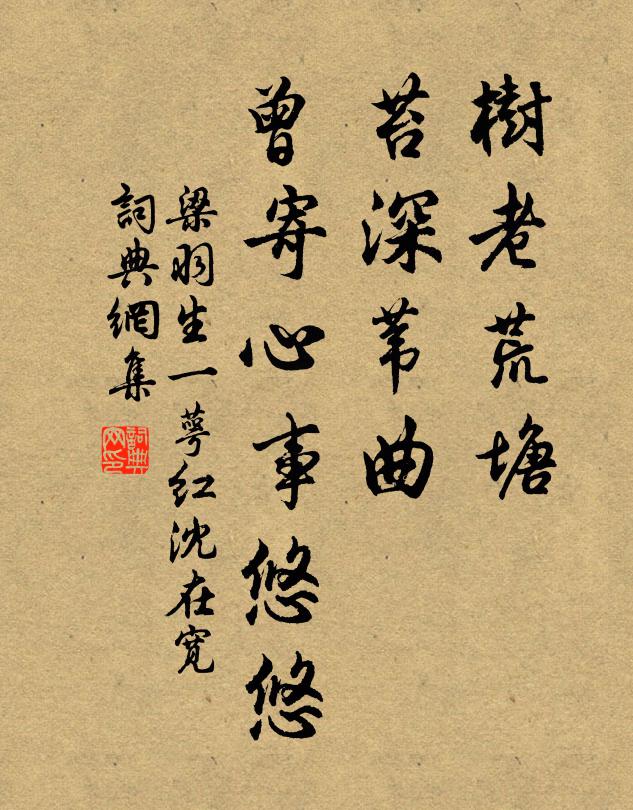 樹老荒塘
苔深苇曲
曾寄心事悠悠
梁羽生一萼紅沈在寬
詞典網集
詞典网印